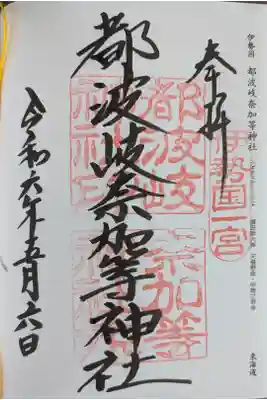 伊勢国 都波岐奈加等神社
東海道
奉拝
伊勢国一宮
都波岐奈加等神社
都波岐
奈加等
令和六年五月六日